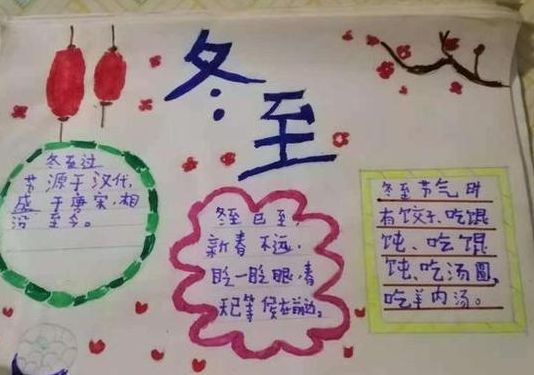 冬至
冬至过
节源于汉代,
盛于唐宋,相
沿至今。
冬至已至,
新春不远,
眨一眨眼,春
天已等候在前边。
冬至节气时
有饺子、吃馄
饨、吃馄
饨、吃汤圆,
吃羊肉汤。